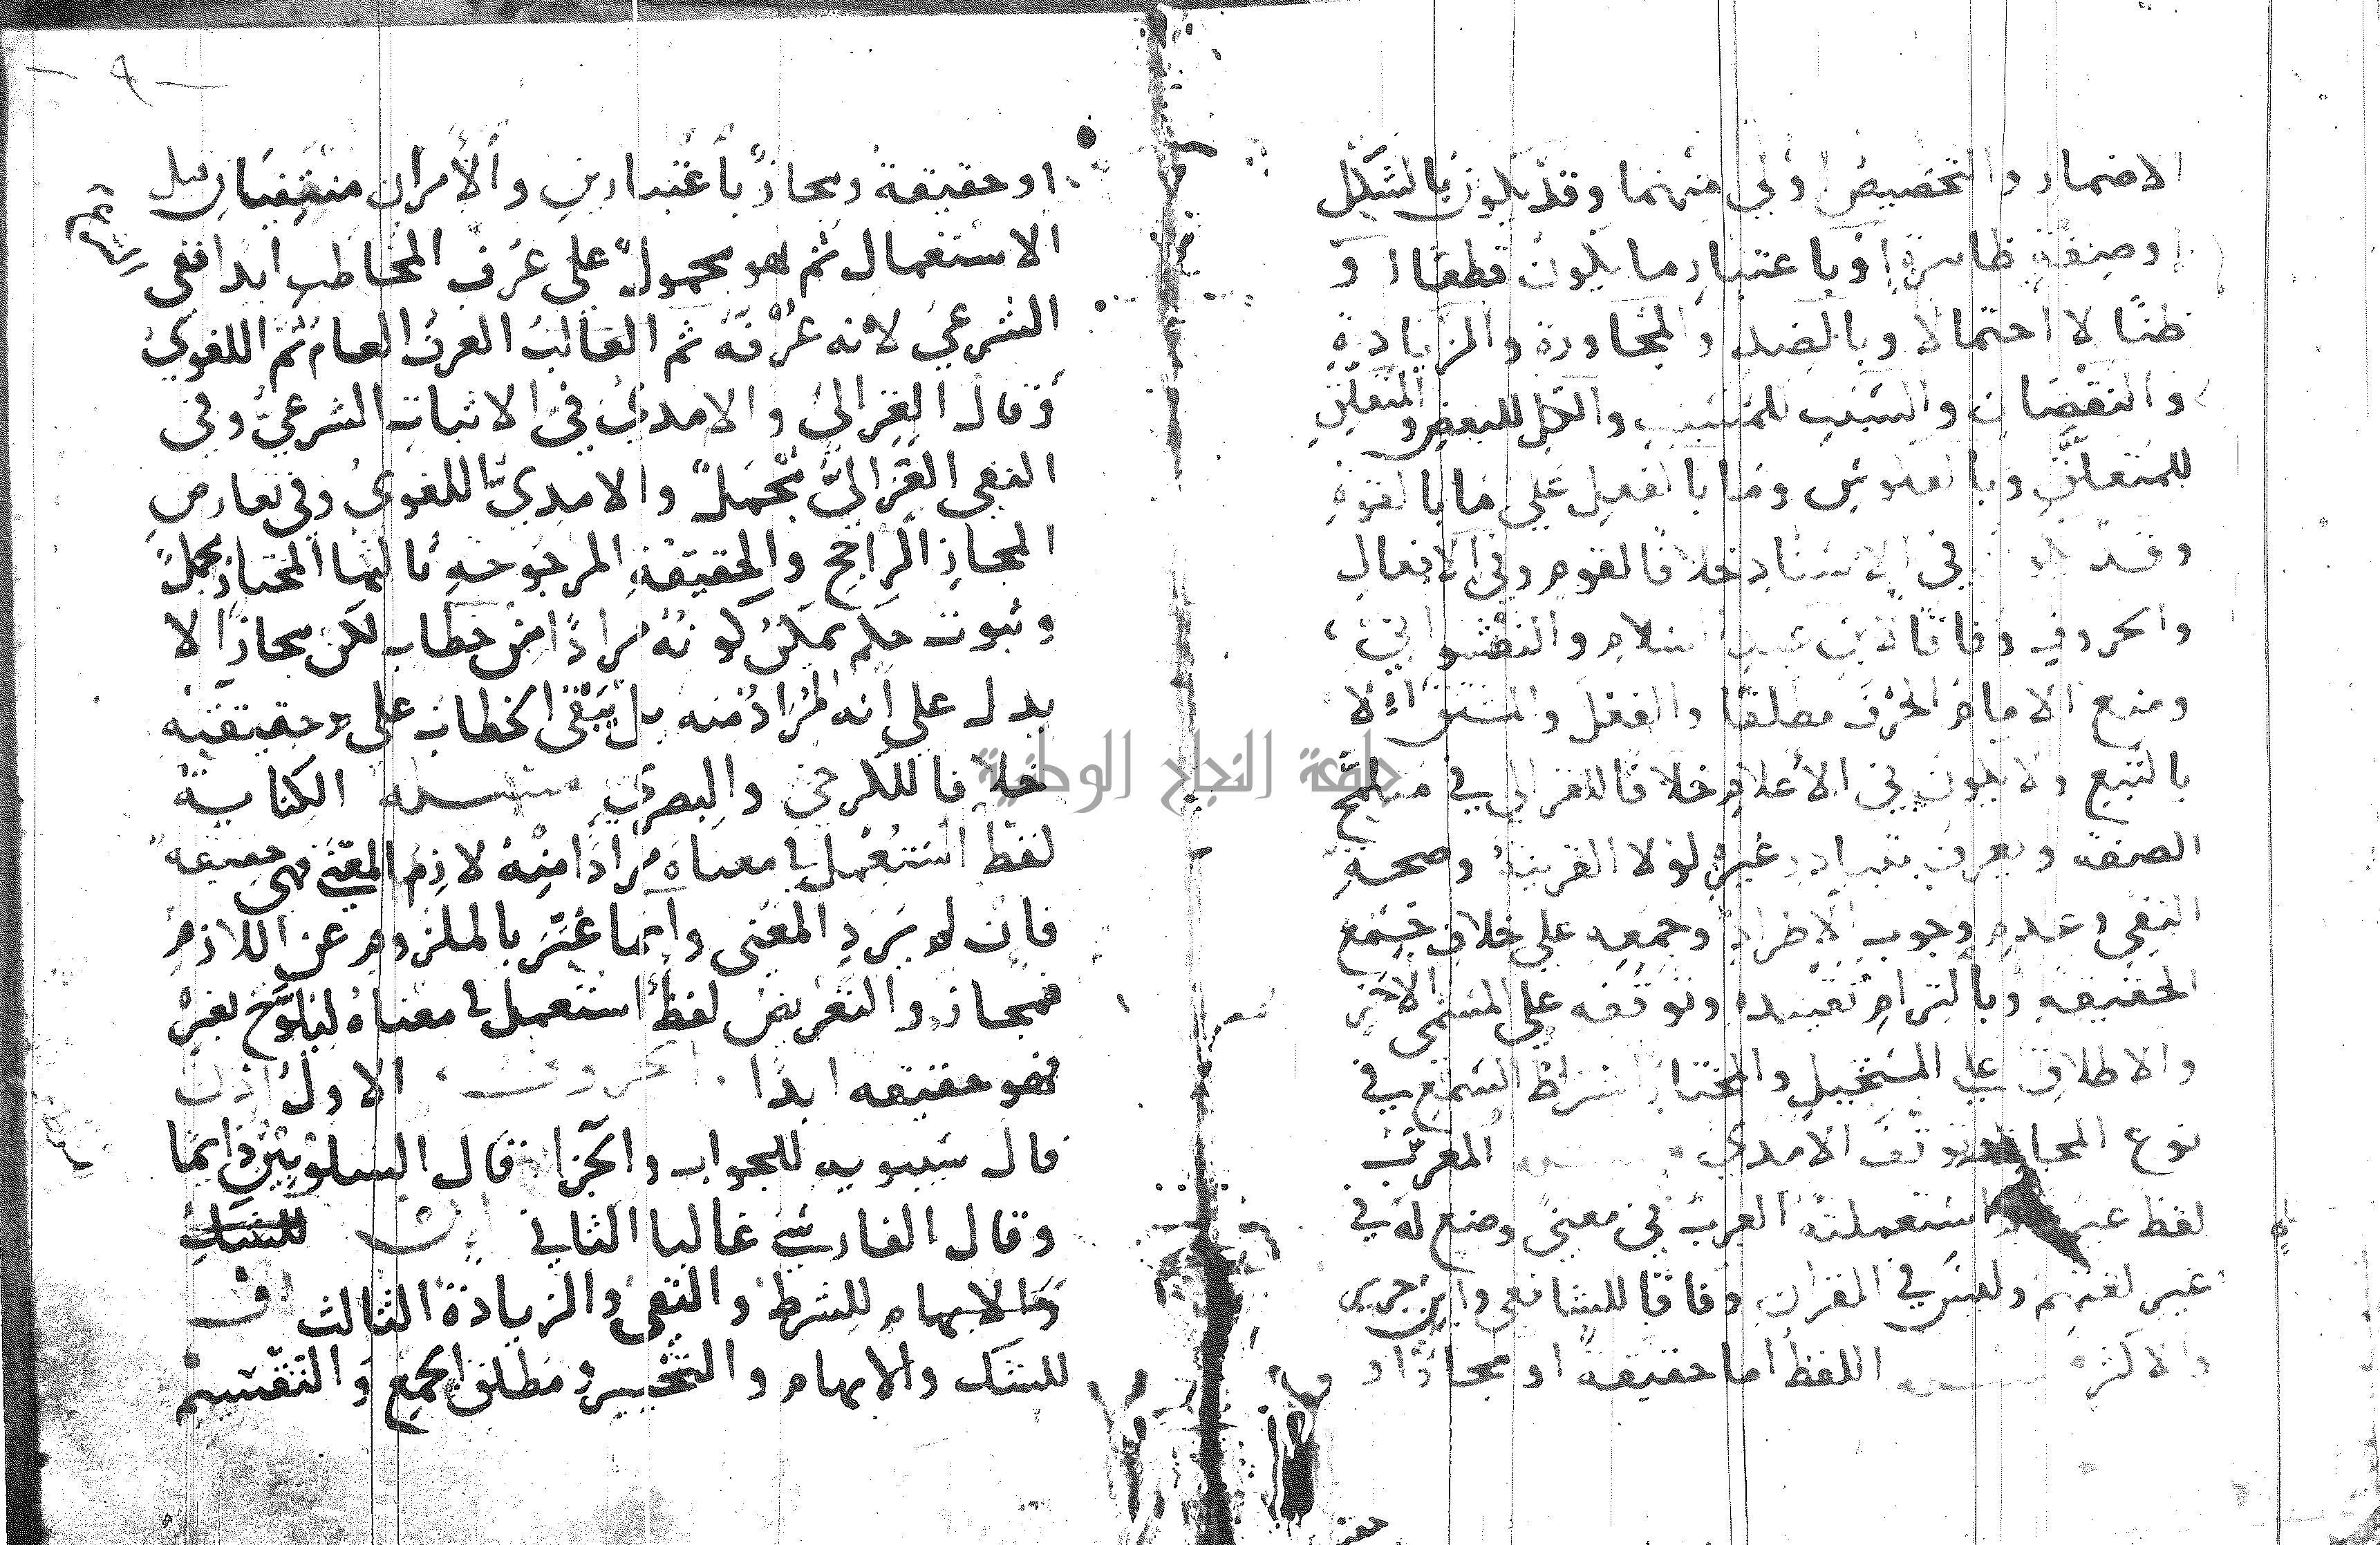 الاضمار والتخصيص اولى منهما وقد يكون بالشكل
او صفة ظاهرة او باعتبار ما يكون قطعا او
ظنا لا احتمالا وبالضد والمجاورة والزيادة
والنقصان والسبب للمسبب والكل للبعض والمتعلِّق
للمتعلَّق وبالعكوس وما بالفعل على ما بالقوة
وقد يكون في الاسناد خلافا لقوم وفي الافعال
والحروف وفاقا لابن عبد السلام والنقشواني
ومنع الامام الحرف مطلقا والفعل والمشتق الا
بالتبع ولا يكون في الأعلام خلافا للغزالي في متلمح
الصفة ويعرف بتبادر غيره لولا القرينة وصحة
النفي وعدم وجوب الاطراد وجمعه على خلاف جمع
الحقيقة وبالتزام تقييده وتوقفه على المسمى الاخر
والاطلاق على المستحيل والمختار اشتراط السمع في
نوع المجاز وتوقف الامدي مسئلة المعرب
لفظ غير استعملته العرب في معنى وضع له في
غير لغتهم وليس في القران وفاقا للشافعي وابن جرير
والاكثر مسئلة اللفظ اما حقيقة او مجاز او
حقيقة
- ٩ -
او حقيقة ومجازً باعتبارين والأمران منتفيان قبل
الاستعمال ثم هو محمولٌ على عرف المخاطب ابدا ففي
الشرعيُ لانه عُرْفُهُ ثم الغالبُ العرفُ العامُ ثم اللغويُ
وقال الغزاليُ والامديُ في الاثبات الشرعيُّ وفي
النفي الغزاليُّ مُجْمَلٌ والامديُّ اللغويُ وفي تعارض
المجازِ الراجحِ والحقيقةِ المرجوحةِ ثالثها المختار مجملٌ
وثبوت حكم يمكنُ كونُهُ مُرادًا من خطاب لكن مجازًا لا
يدل على انه المُرَادُ منه بل يَبْقَى الخطابُ على حقيقته
خلافا للكرخي والبصري مسئلة الكناية
لفظ استُعْمِل في معناه مرادًا منهُ لازمُ المعْنى فهي حقيقة
فان لم يَرِدِ المعنى وانما عَبَّرَ بالملزوم عن اللازم
فمجاز والتعريض لفظٌ استعمل في معناهُ ليلوَّحَ بغيرْ
فهو حقيقه ابدا الحروف الاولُ اذن
قال سيبويه للجواب والجزاء قال الشلوبين دائما
وقال الفارسي غالبا الثاني ان للشك
والابهام للشرط والنفي والزيادة الثالث او
للشك والابهام والتخيير ومطلق الجمع والتقسيم
جامعة النجاح الوطنية